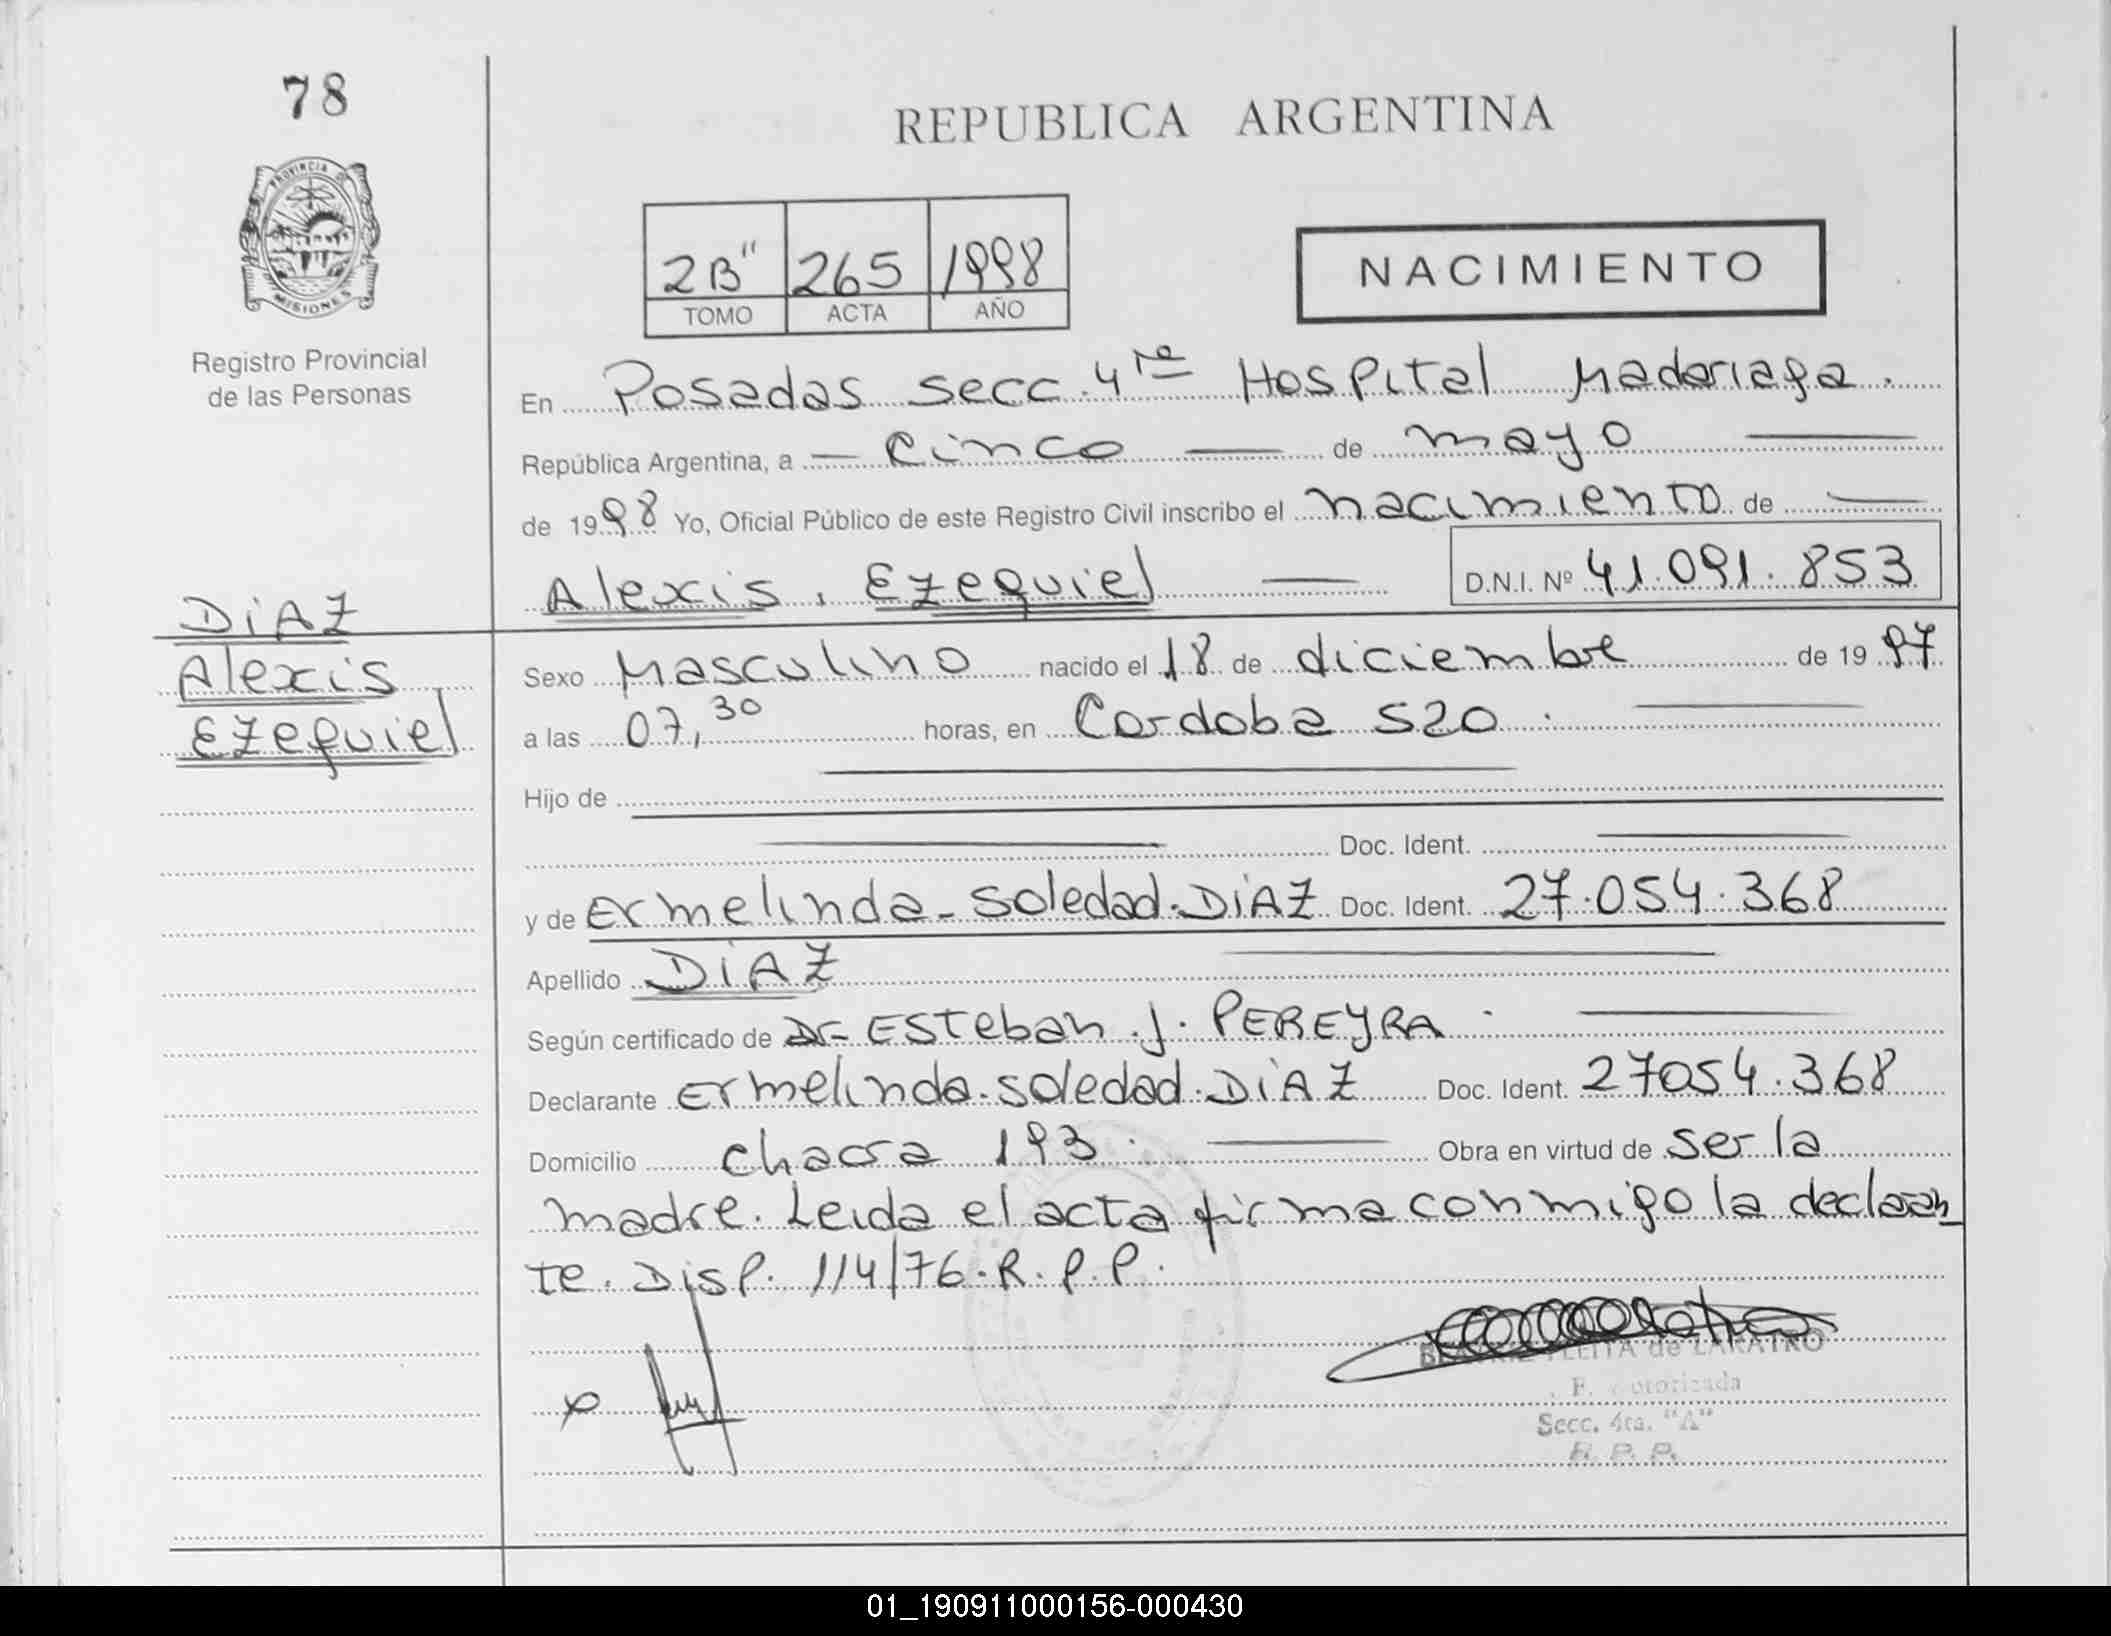 78
REPUBLICA ARGENTINA
PROVINCIA DE
MISIONES
Registro Provincial
de las Personas
2B" 265 1998
TOMO ACTA AÑO
NACIMIENTO
En Posadas secc. 4ta Hospital Madariaga.
República Argentina, a — Cinco — de mayo —
de 1998 Yo, Oficial Público de este Registro Civil inscribo el nacimiento de —
Alexis, Ezequiel — D.N.I. Nº 41.091.853
DiAZ
Alexis
Ezequiel
Sexo Masculino nacido el 18 de diciembre de 1997
a las 07,30 horas, en Cordoba 520. —
Hijo de —
— Doc. Ident. —
y de Ermelinda - Soledad. DiAZ Doc. Ident. 27.054.368
Apellido DiAZ —
Según certificado de Dr- ESteban. J. PEREYRA. —
Declarante Ermelinda. Soledad. DiAZ Doc. Ident. 27054.368
Domicilio chacra 193. — Obra en virtud de ser la
madre. Leida el acta firma conmigo la declaran
te. Disp. 114/76. R. P. P.
BEATRIZ FLEITA de LARATRO
Secc. 4ta. "A"
R. P. P.
01_190911000156-000430